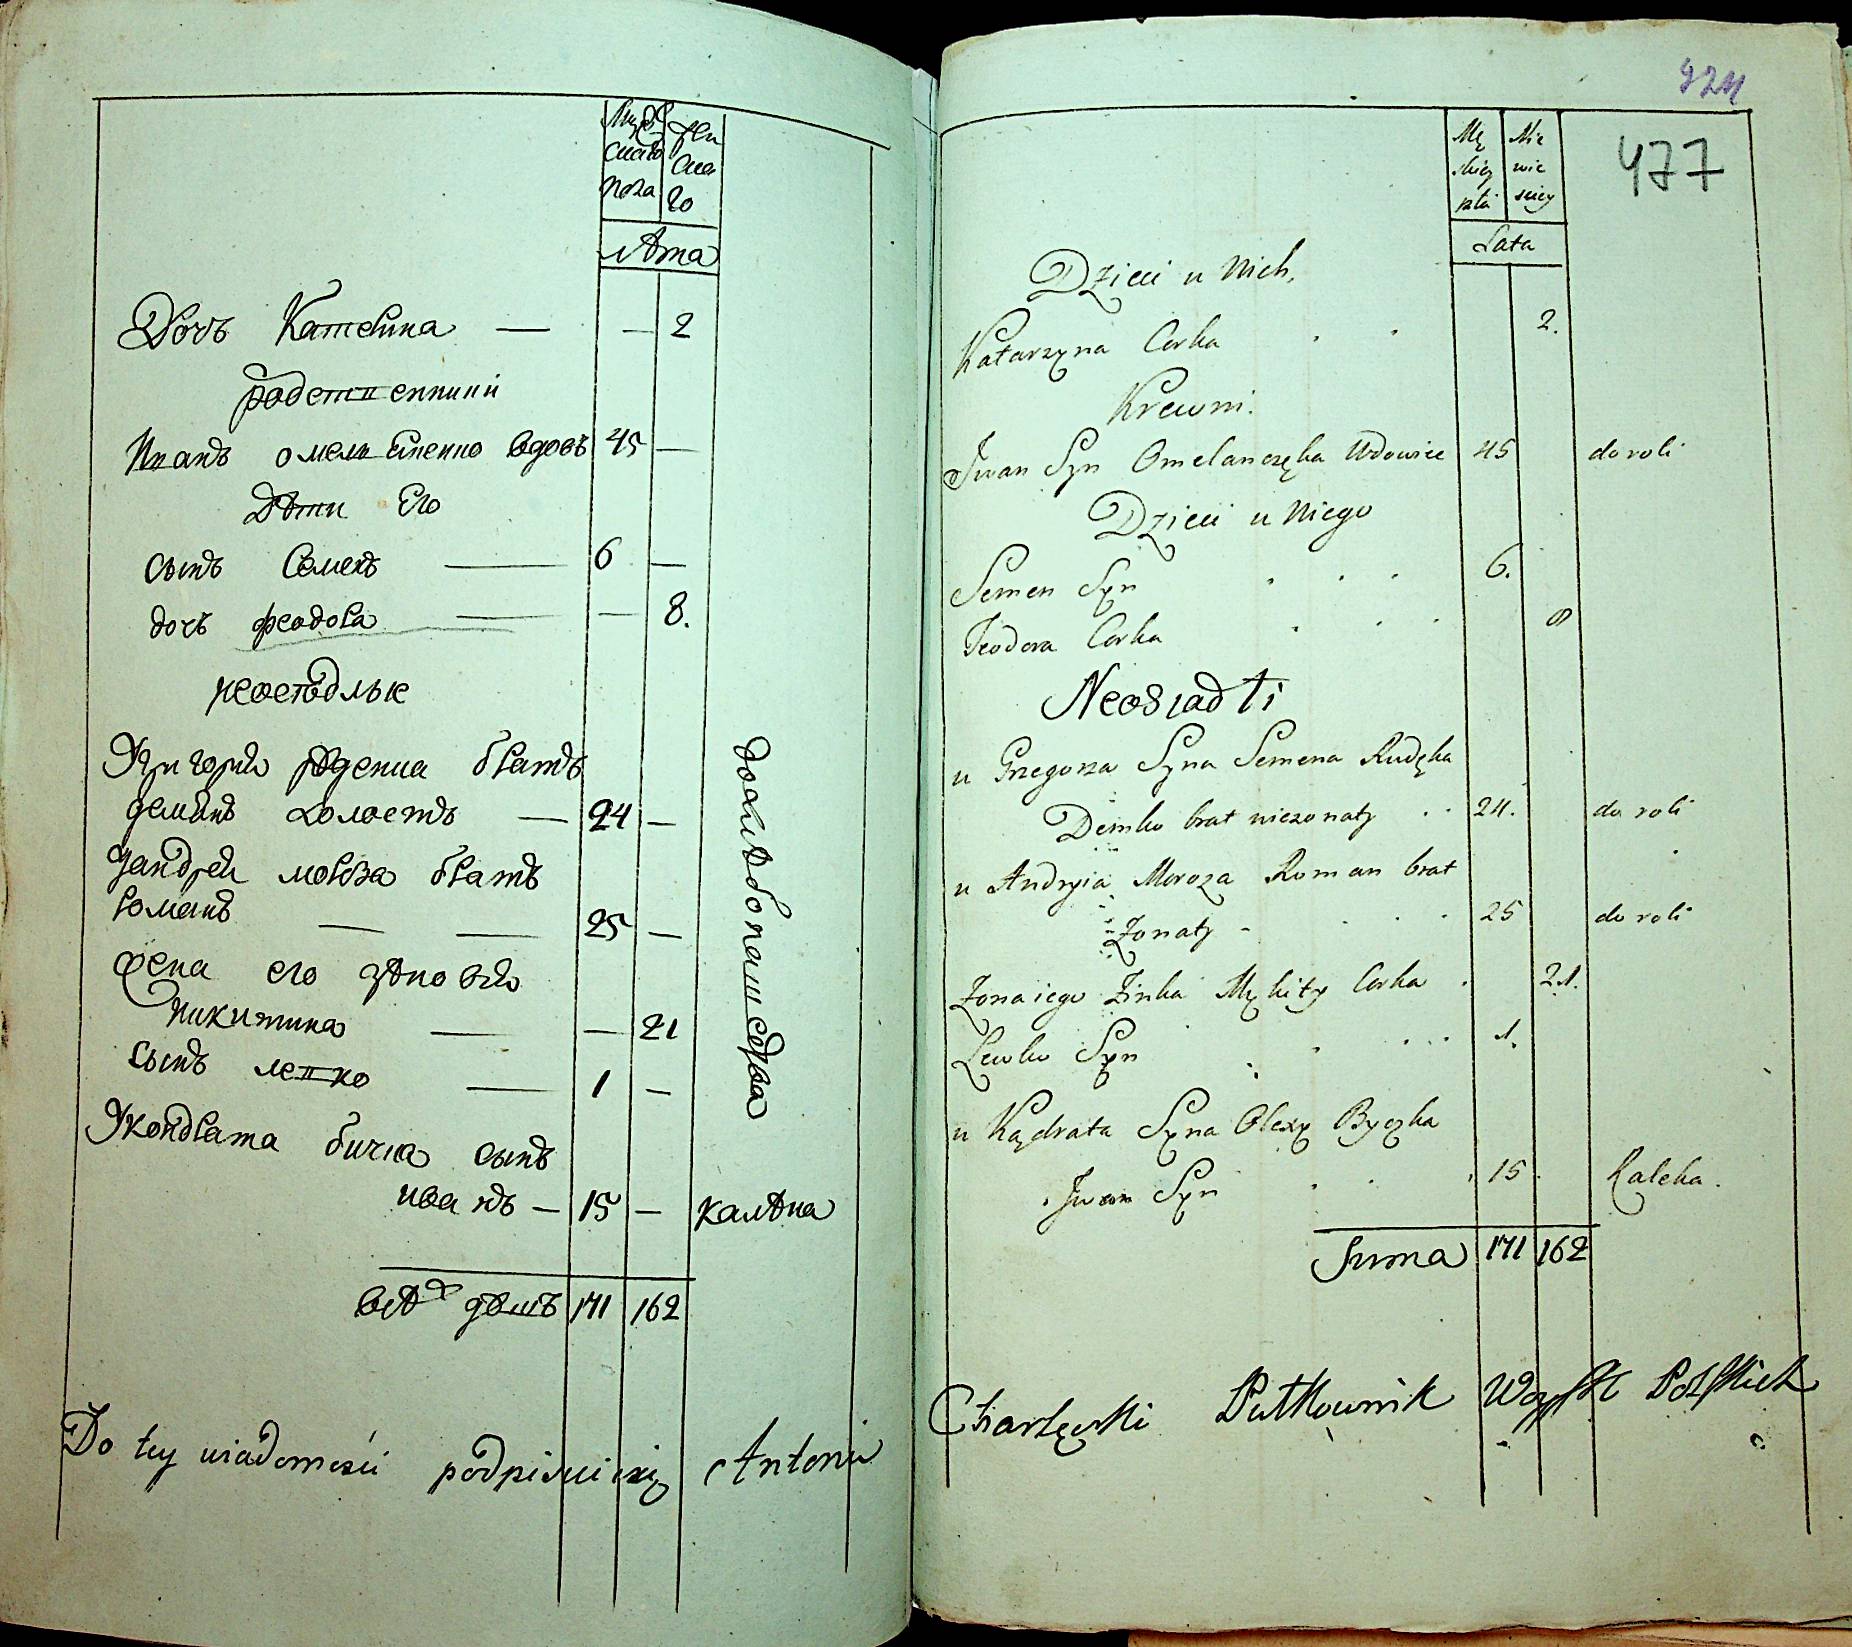 Мужс
скаго
пола
жен
ска
го
Лѣта
Дочъ Катерина — — 2
родственники
Иванъ омельяненко вдовъ 45 —
Дѣти Его
сынъ Семенъ — 6 —
дочъ феодора — — 8.
неосѣдлые
Угригория руденка братъ
демянъ холостъ — 24 —
Уандрея мороза братъ
романъ — — 25 —
жена его зѣновия
никитина — — 21
сынъ левко — 1 —
Укондрата бичка сынъ
иванъ — 15 — калѣка
всѣхъ душъ 171 162
Do tey wiadomości podpisuie się Antoni
924
477
Mę
skiey
płci
Nie
wie
sciey
Lata
Dzieci u Nich,
Katarzyna Corka . . 2.
Krewni.
Jwan Syn Omelanczyka Wdowiec 45 do roli
Dzieci u Niego
Semen Syn . . . 6.
Teodora Corka . . . 8
Neosiadłi
u Grzegorza Syna Semena Rudyka
Demko brat niezonaty . . 24. do roli
u Andryia Moroza Roman brat
Zonaty . . . 25 do roli
Zona iego Zinka Mykity Corka . 21.
Lewko Syn . . . 1.
u Kądrata Syna Olexy Byczka
Jwan Syn . . . 15. Kaleka.
Suma 171 162
Charlęski Pułkownik Woysk Polskich